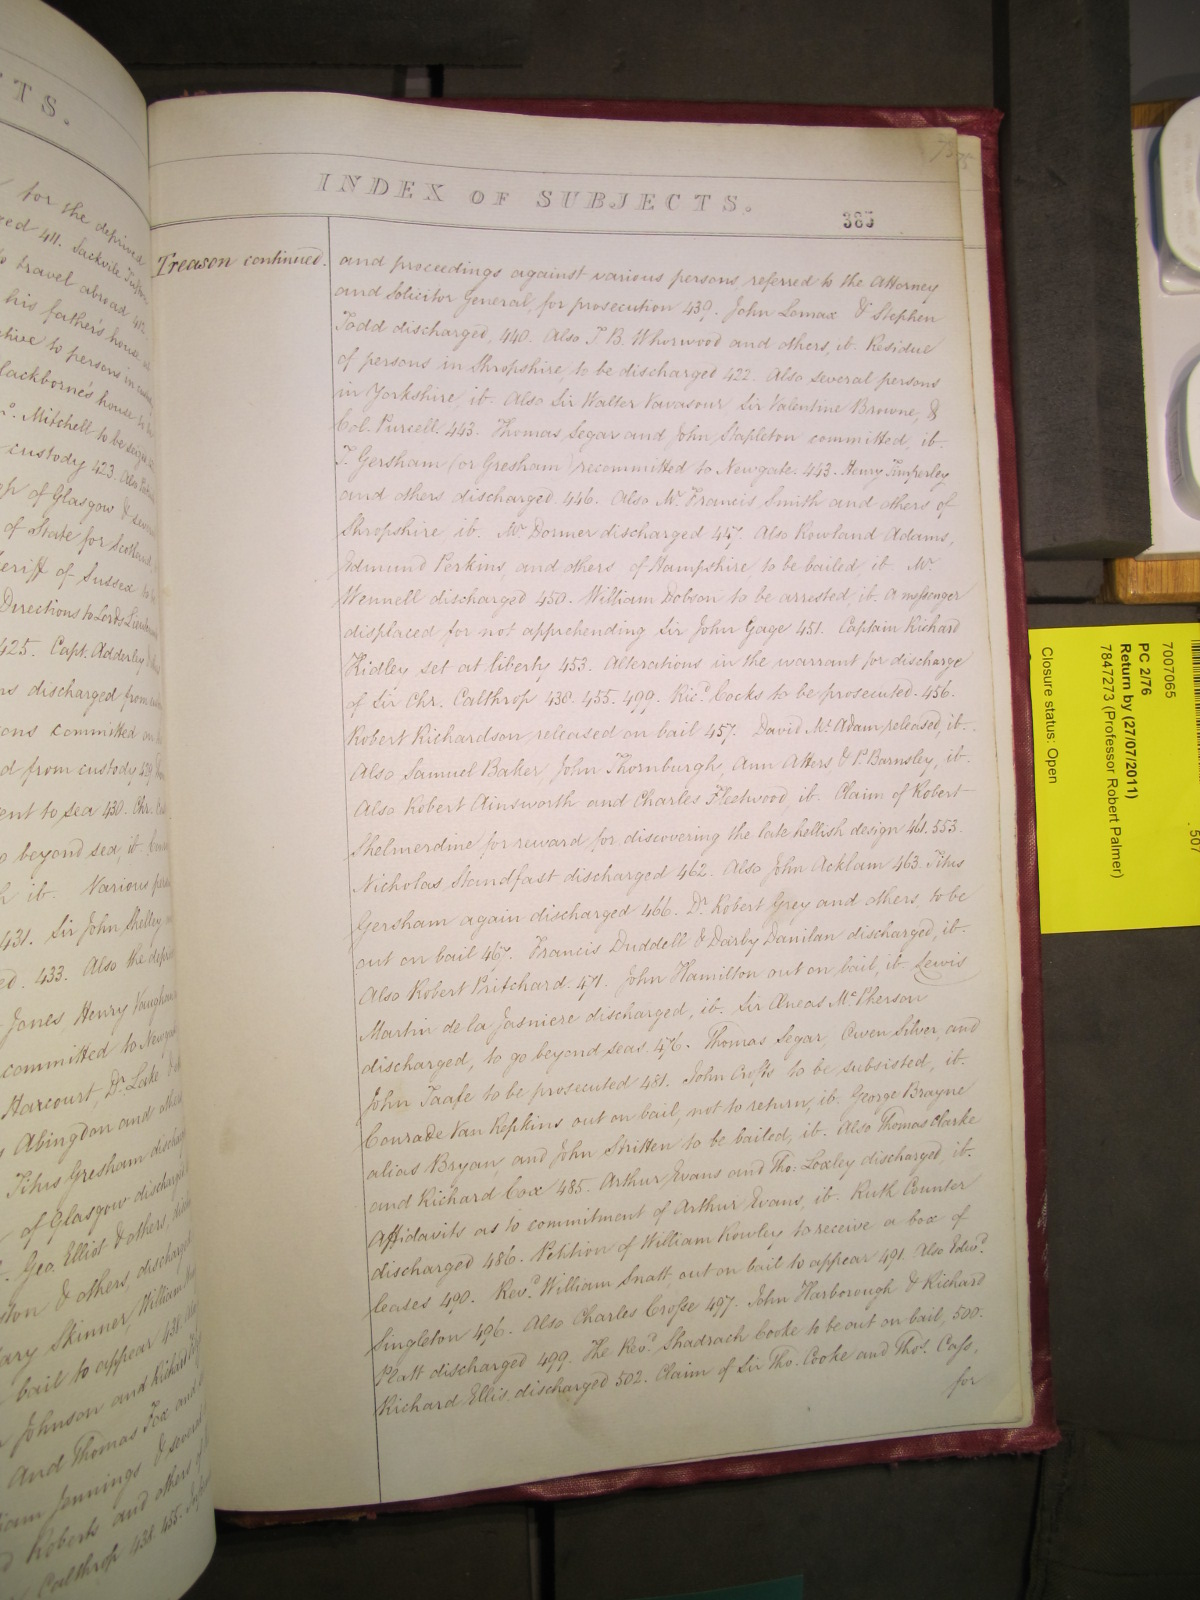 CTS.
for the deprived
411. Sackville Tufton
to travel abroad
his father's house
persons in
Blackborne's house
Mitchell to be
custody 423. Also
of Glasgow &
of State for Scotland
Sheriff of Sussex to
Directions to Lords Lieutenant
425. Capt. Adderley
discharged from
committed
from custody
sent to sea 430. Chr.
beyond sea, it.
it. Various
431. Sir John Shelley
433. Also the
Jones Henry Vaughan
committed to Newgate
Harcourt, Dr. Lake
Abingdon and others
Titus Gresham
of Glasgow discharged
Geo. Elliot & others,
& others, discharged
Skinner, William
bail to appear
Johnson and Richard
And Thomas Fox and
Jennings & several
Roberts and others of
Calthrop 438. 455.
INDEX OF SUBJECTS.
383
Treason continued.
and proceedings against various persons, referred to the Attorney
and Solicitor General, for prosecution 439. John Lomax & Stephen
Todd discharged, 440. Also T. B. Whorwood and others, it. Residue
of persons in Shropshire, to be discharged 422. Also several persons
in Yorkshire, it. Also Sir Walter Vavasour Sir Valentine Browne, &
Col. Purcell. 443. Thomas Segar and John Stapleton committed it.
T. Gersham (or Gresham) recommitted to Newgate. 443. Henry Timperley
and others discharged. 446. Also Mr. Francis Smith and others of
Shropshire it. Mr. Dormer discharged 447. Also Rowland Adams,
Edmund Perkins, and others of Hampshire, to be bailed, it. Mr.
Wennell discharged 450. William Dobson to be arrested, it. A messenger
displaced for not apprehending Sir John Gage 451. Captain Richard
Ridley set at liberty 453. Alterations in the warrant for discharge
of Sir Chr. Calthrop 438. 455. 499. Ricd. Cocks to be prosecuted. 456.
Robert Richardson released on bail 457. David Mc.Adam released, it.
Also Samuel Baker, John Thornburgh, Ann Atters & P. Barnsley, it.
Also Robert Ainsworth and Charles Fleetwood, it. Claim of Robert
Shelmerdine for reward for discovering the late hellish design 461. 553.
Nicholas Standfast discharged 462. Also John Acklam 463. Titus
Gersham again discharged 466. Dr. Robert Grey and others, to be
out on bail 467. Francis Duddell & Darby Danilan discharged, it.
Also Robert Pritchard. 471. John Hamilton out on bail, it. Lewis
Martin de la Jasniere discharged, it. Sir Aneas Mc.Pherson
discharged, to go beyond seas. 476. Thomas Segar, Owen Silver, and
John Taafe to be prosecuted 481. John Crofts to be subsisted, it.
Conrade Van Repkins out on bail, not to return, it. George Brayne
alias Bryan, and John Stritten to be bailed, it. Also Thomas Clarke
and Richard Cox 485. Arthur Evans and Tho: Loxley discharged, it.
Affidavits as to commitment of Arthur Evans, it. Ruth Counter
discharged 486. Petition of William Rowley to receive a box of
leases 490. Revd. William Snatt, out on bail to appear 491. Also Edwd.
Singleton 496. Also Charles Crosse 497. John Harborough & Richard
Platt discharged 499. The Revd. Shadrach Cooke to be out on bail, 500.
Richard Ellis, discharged 502. Claim of Sir Tho. Cooke and Thos. Cass,
for
7007065
PC 2/76
Return by (27/07/2011)
7847273 (Professor Robert Palmer)
Closure status: Open
507